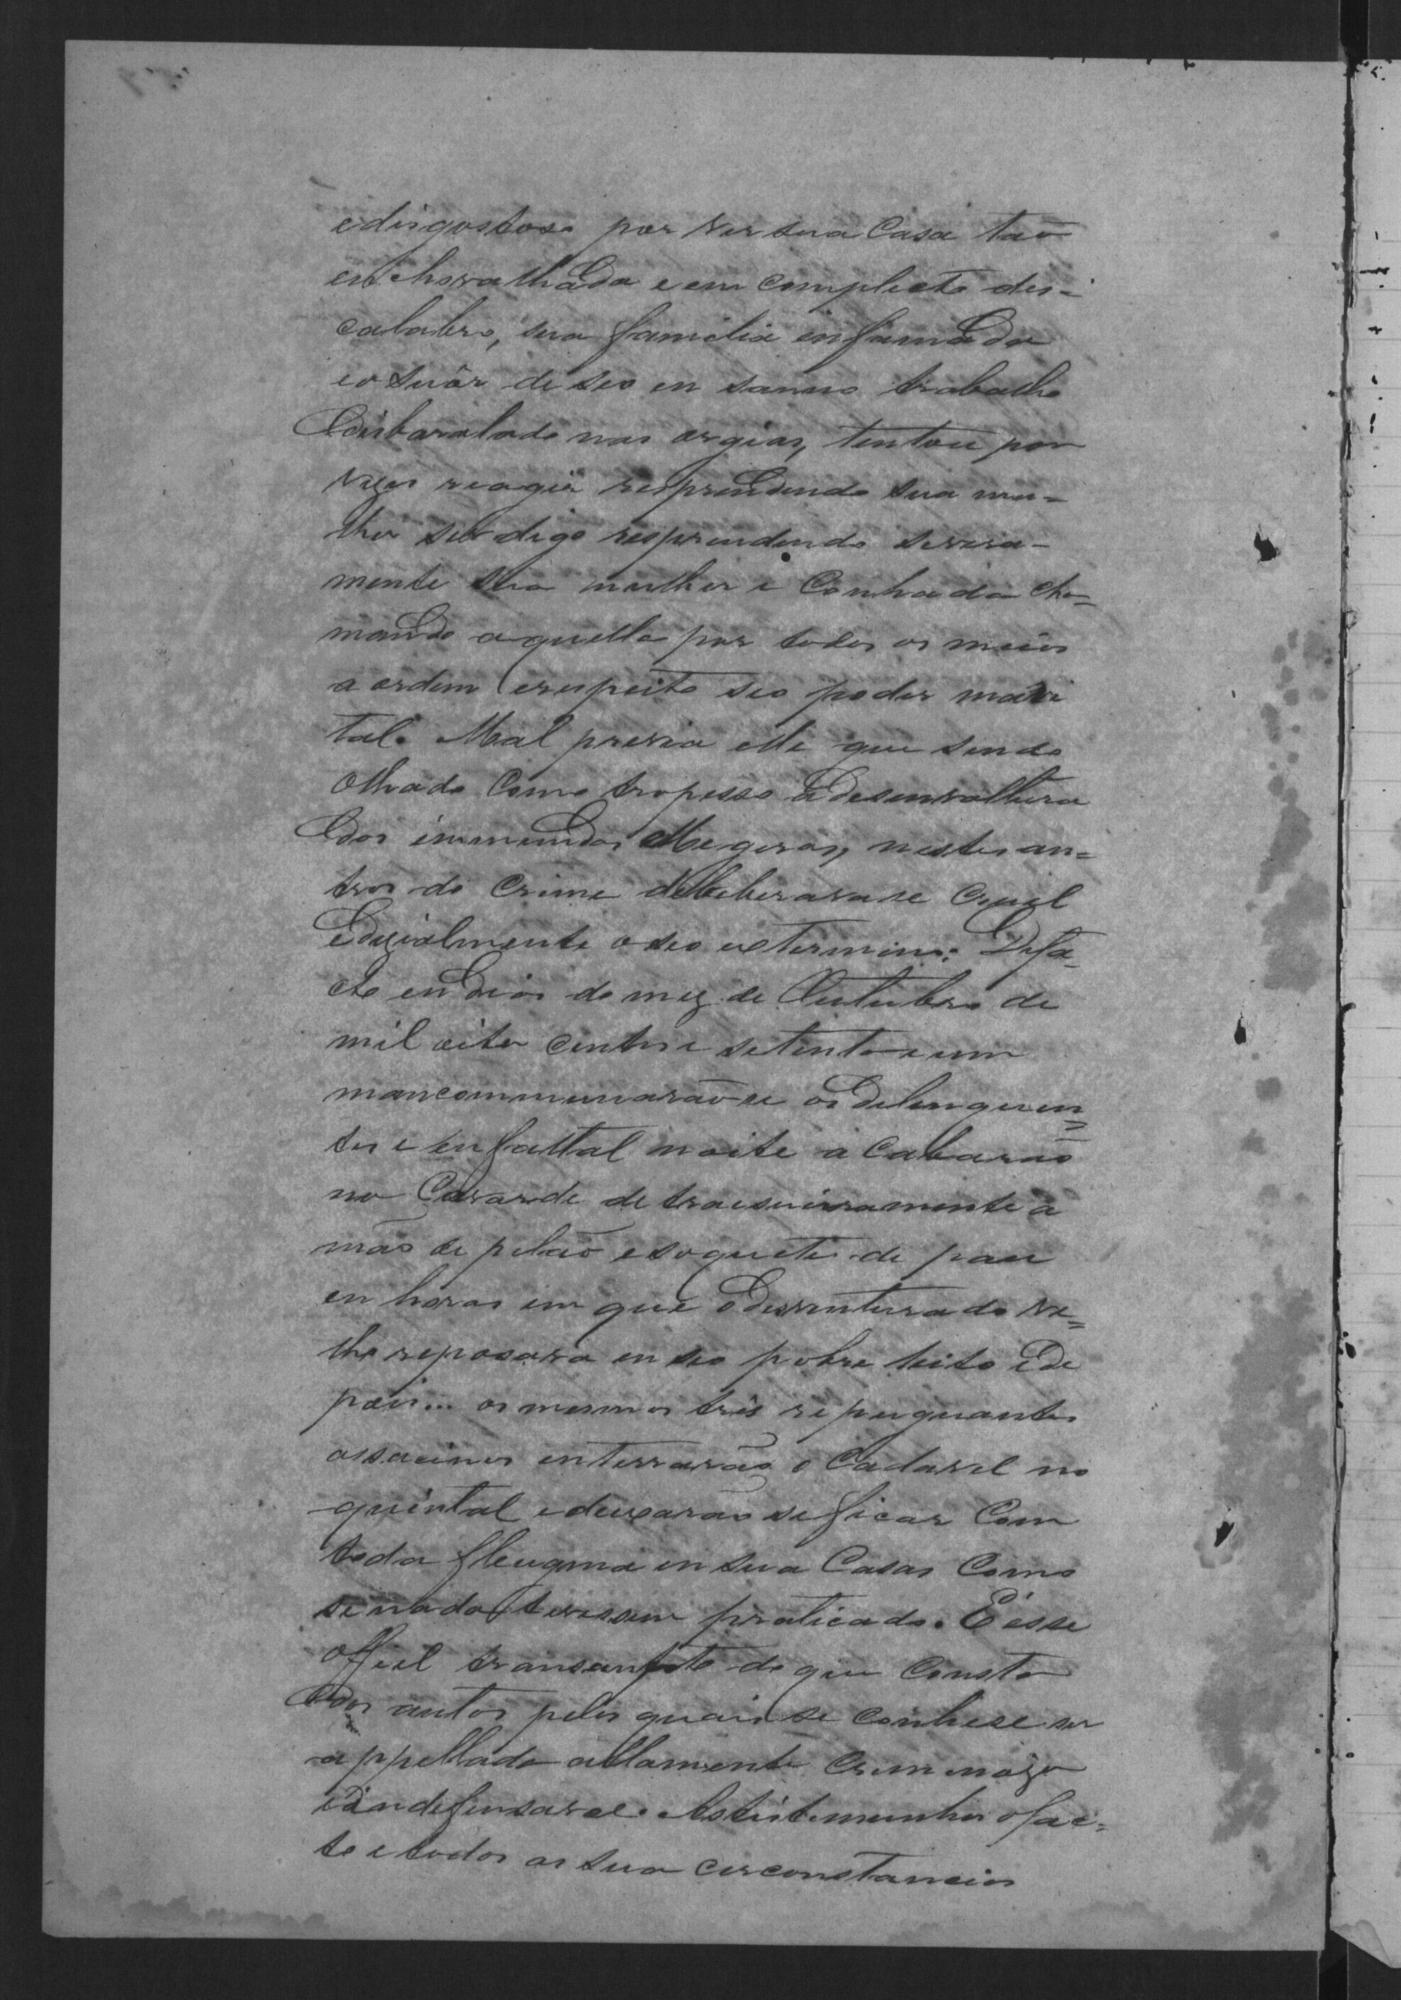 e disgostoso por ver sua Casa tão
enchovalhada e em completo des-
calabro, sua familia infamada
e o suôr de seo insanno trabalho
disbaratado nas orgias, tentou por
vezes reagir reprendendo sua mu-
lher seo digo reprendendo severa-
mente sua mulher e Cunhada cha-
mando aquella por todos os meios
a ordem e respeito seo poder mari
tal. Mal previa elle que sendo
olhado Como tropesso a desenvoltura
das immundas Megeras, nestes an-
tros do Crime deliberavase Cruel
e dezialmente o seo extermino: Defa-
cto en dias do mez de Outubro de
mil oito centos e setenta e um
mancommunarãose os delenquen-
tes e en fattal noite a cabarão
no Covarde de traisueiramente a
mão de pilão e soquete de pau
en horas em que o desventurado ve-
lho reposava en seo pobre leito e de
pois... os mesmos três repuguantes
assacinos enterrarão o Cadavel no
quintal e deixarão se ficar Com
toda fleugma en sua Casas Como
se nada tivessem praticado. É esse
o fiel transumpto do que Consta
dos autos pelos quais se conhese ser
appellada altamente Creminoza
e indefensavel. Astistemunhas o fac-
to e todas as sua circonstancias